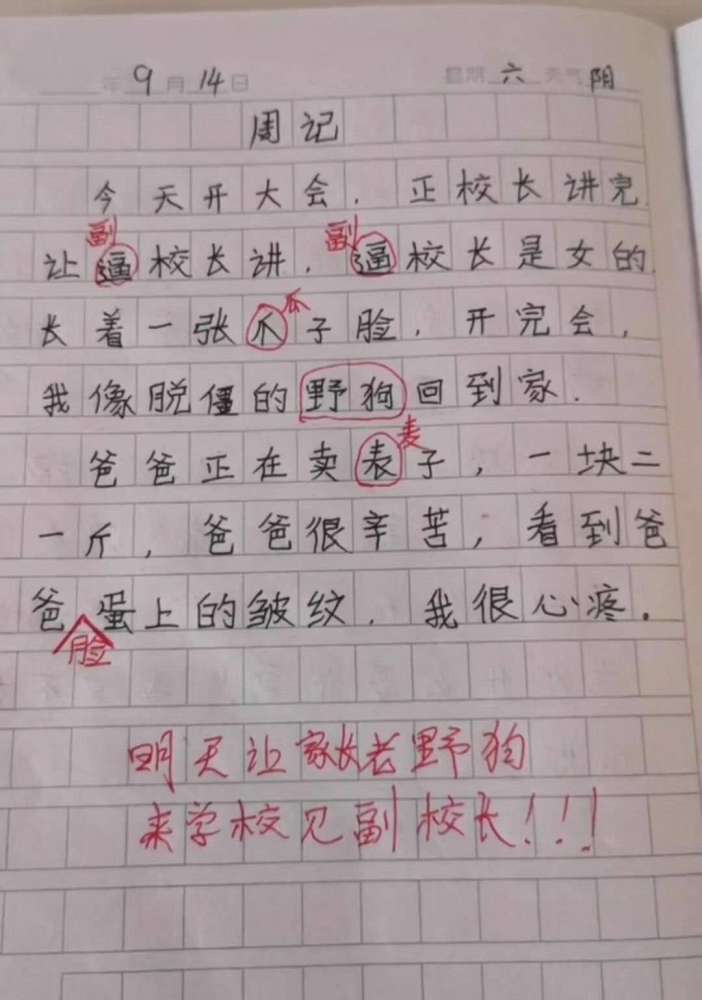 年 9 月 14 日 星期 六 天气 阴
周记
今天开大会，正校长讲完
副 副
让逼校长讲，逼校长是女的
长着一张爪子脸，开完会，
瓜
我像脱僵的野狗回到家．
爸爸正在卖表子，一块二
麦
一斤，爸爸很辛苦，看到爸
爸蛋上的皱纹．我很心疼．
脸
明天让家长老野狗
来学校见副校长！！！